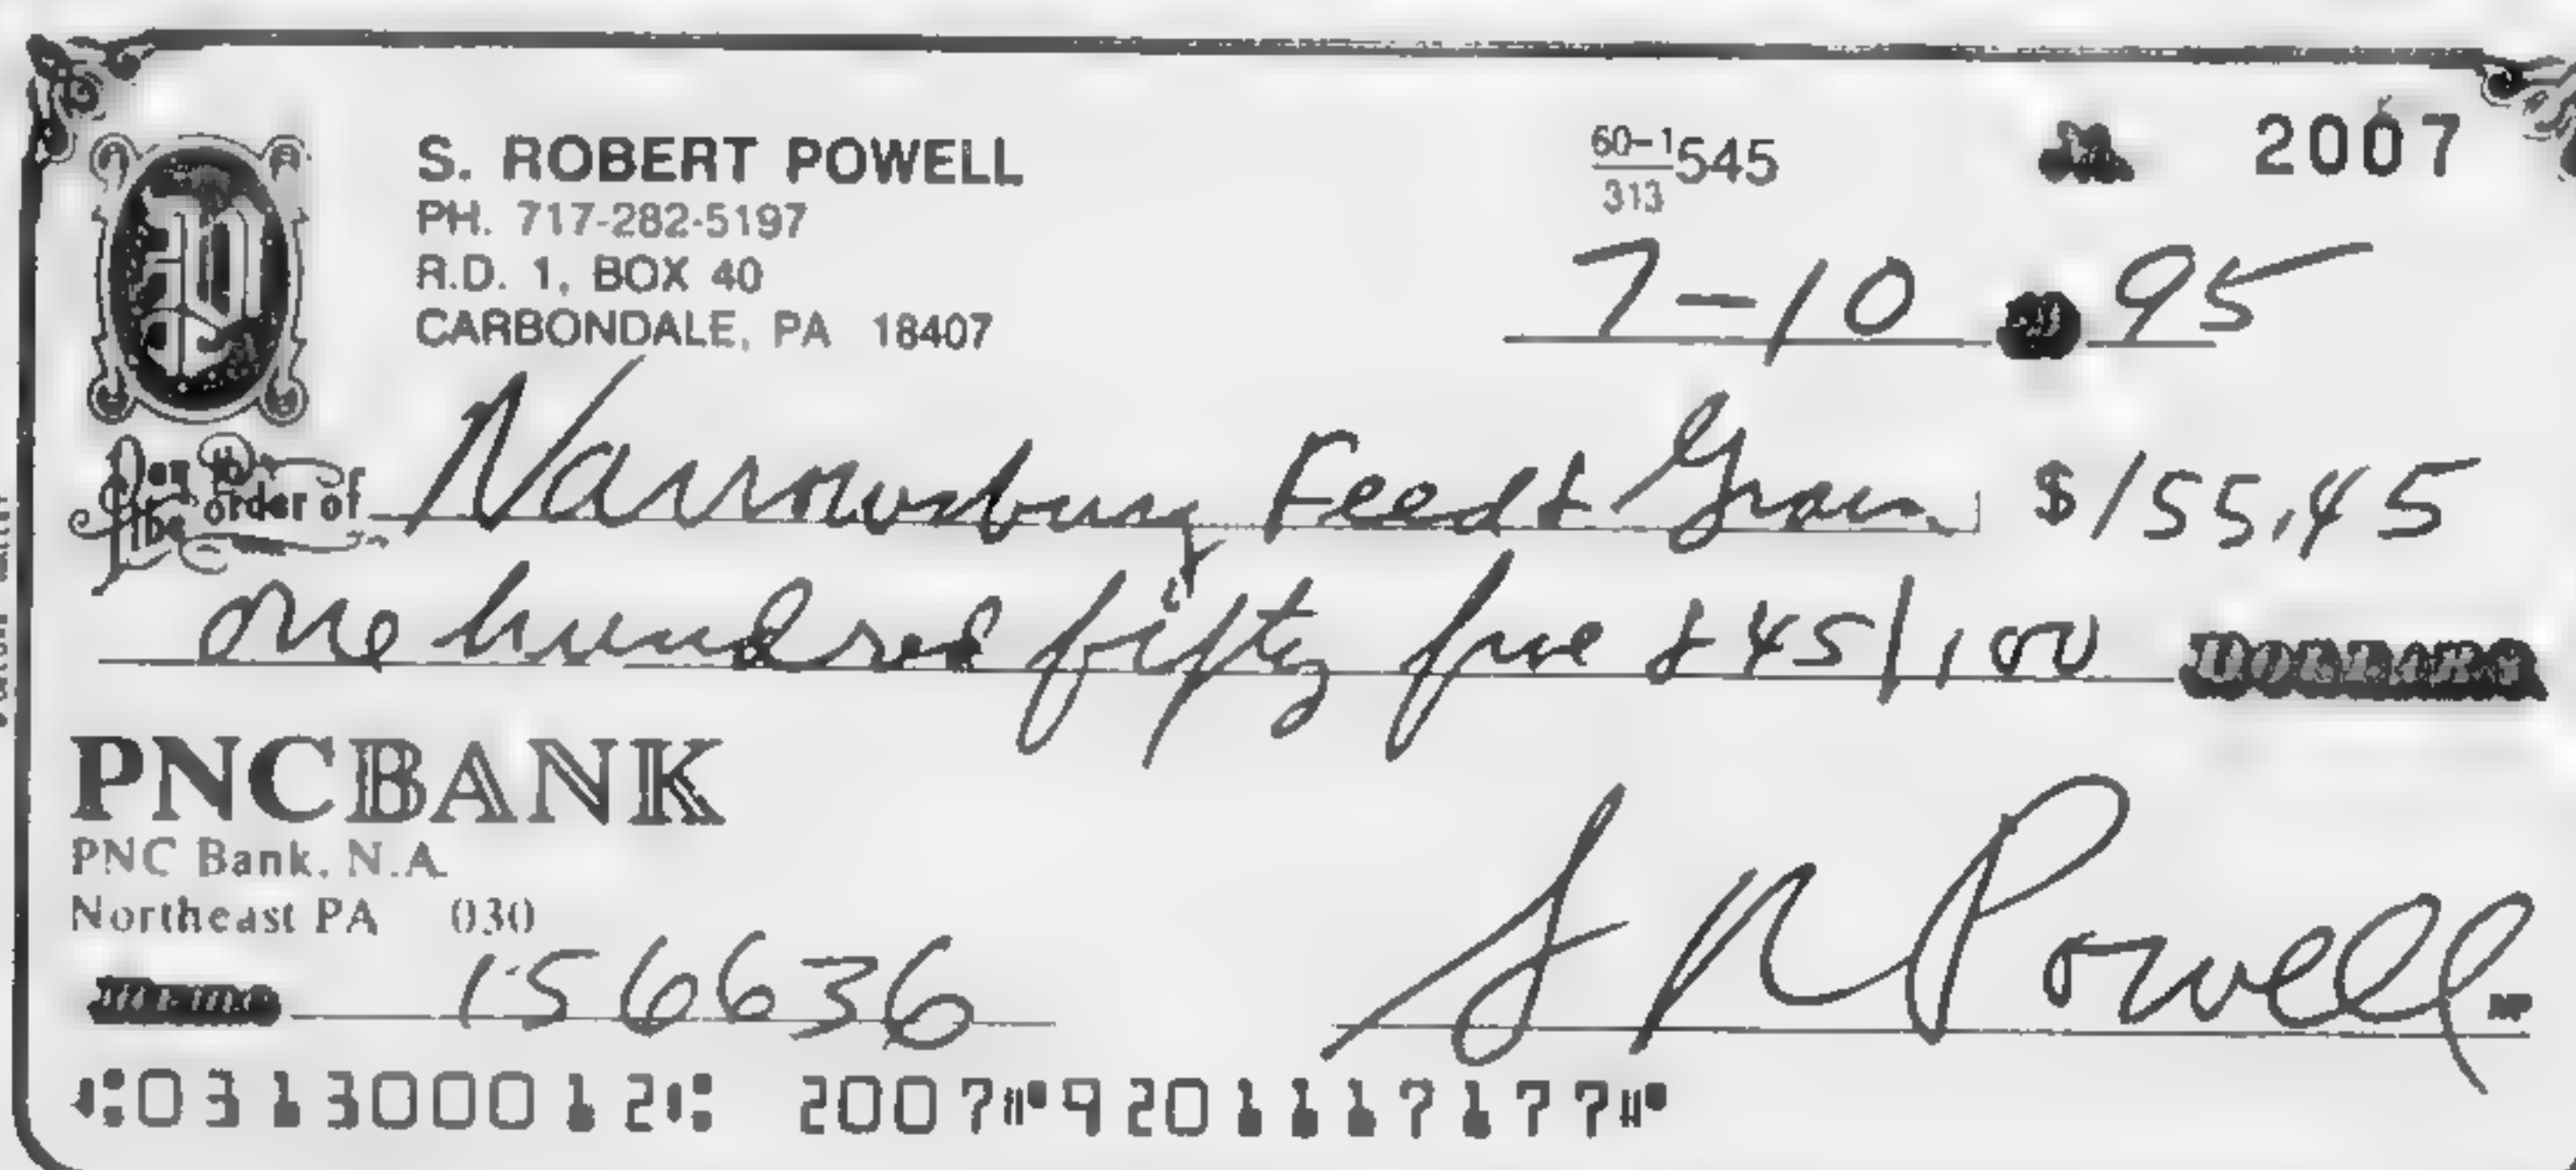 S. ROBERT POWELL
PH. 717-282-5197
R.D. 1, BOX 40
CARBONDALE, PA 18407
60-1545
313
2007
7-10 95
Pay to the order of Narrowsburg Feed & Grain $155.45
One hundred fifty five & 45/100 DOLLARS
PNCBANK
PNC Bank, N.A.
Northeast PA 030
MEMO 156636
S R Powell
MP
⑆031300012⑆ 2007⑈9201117177⑈